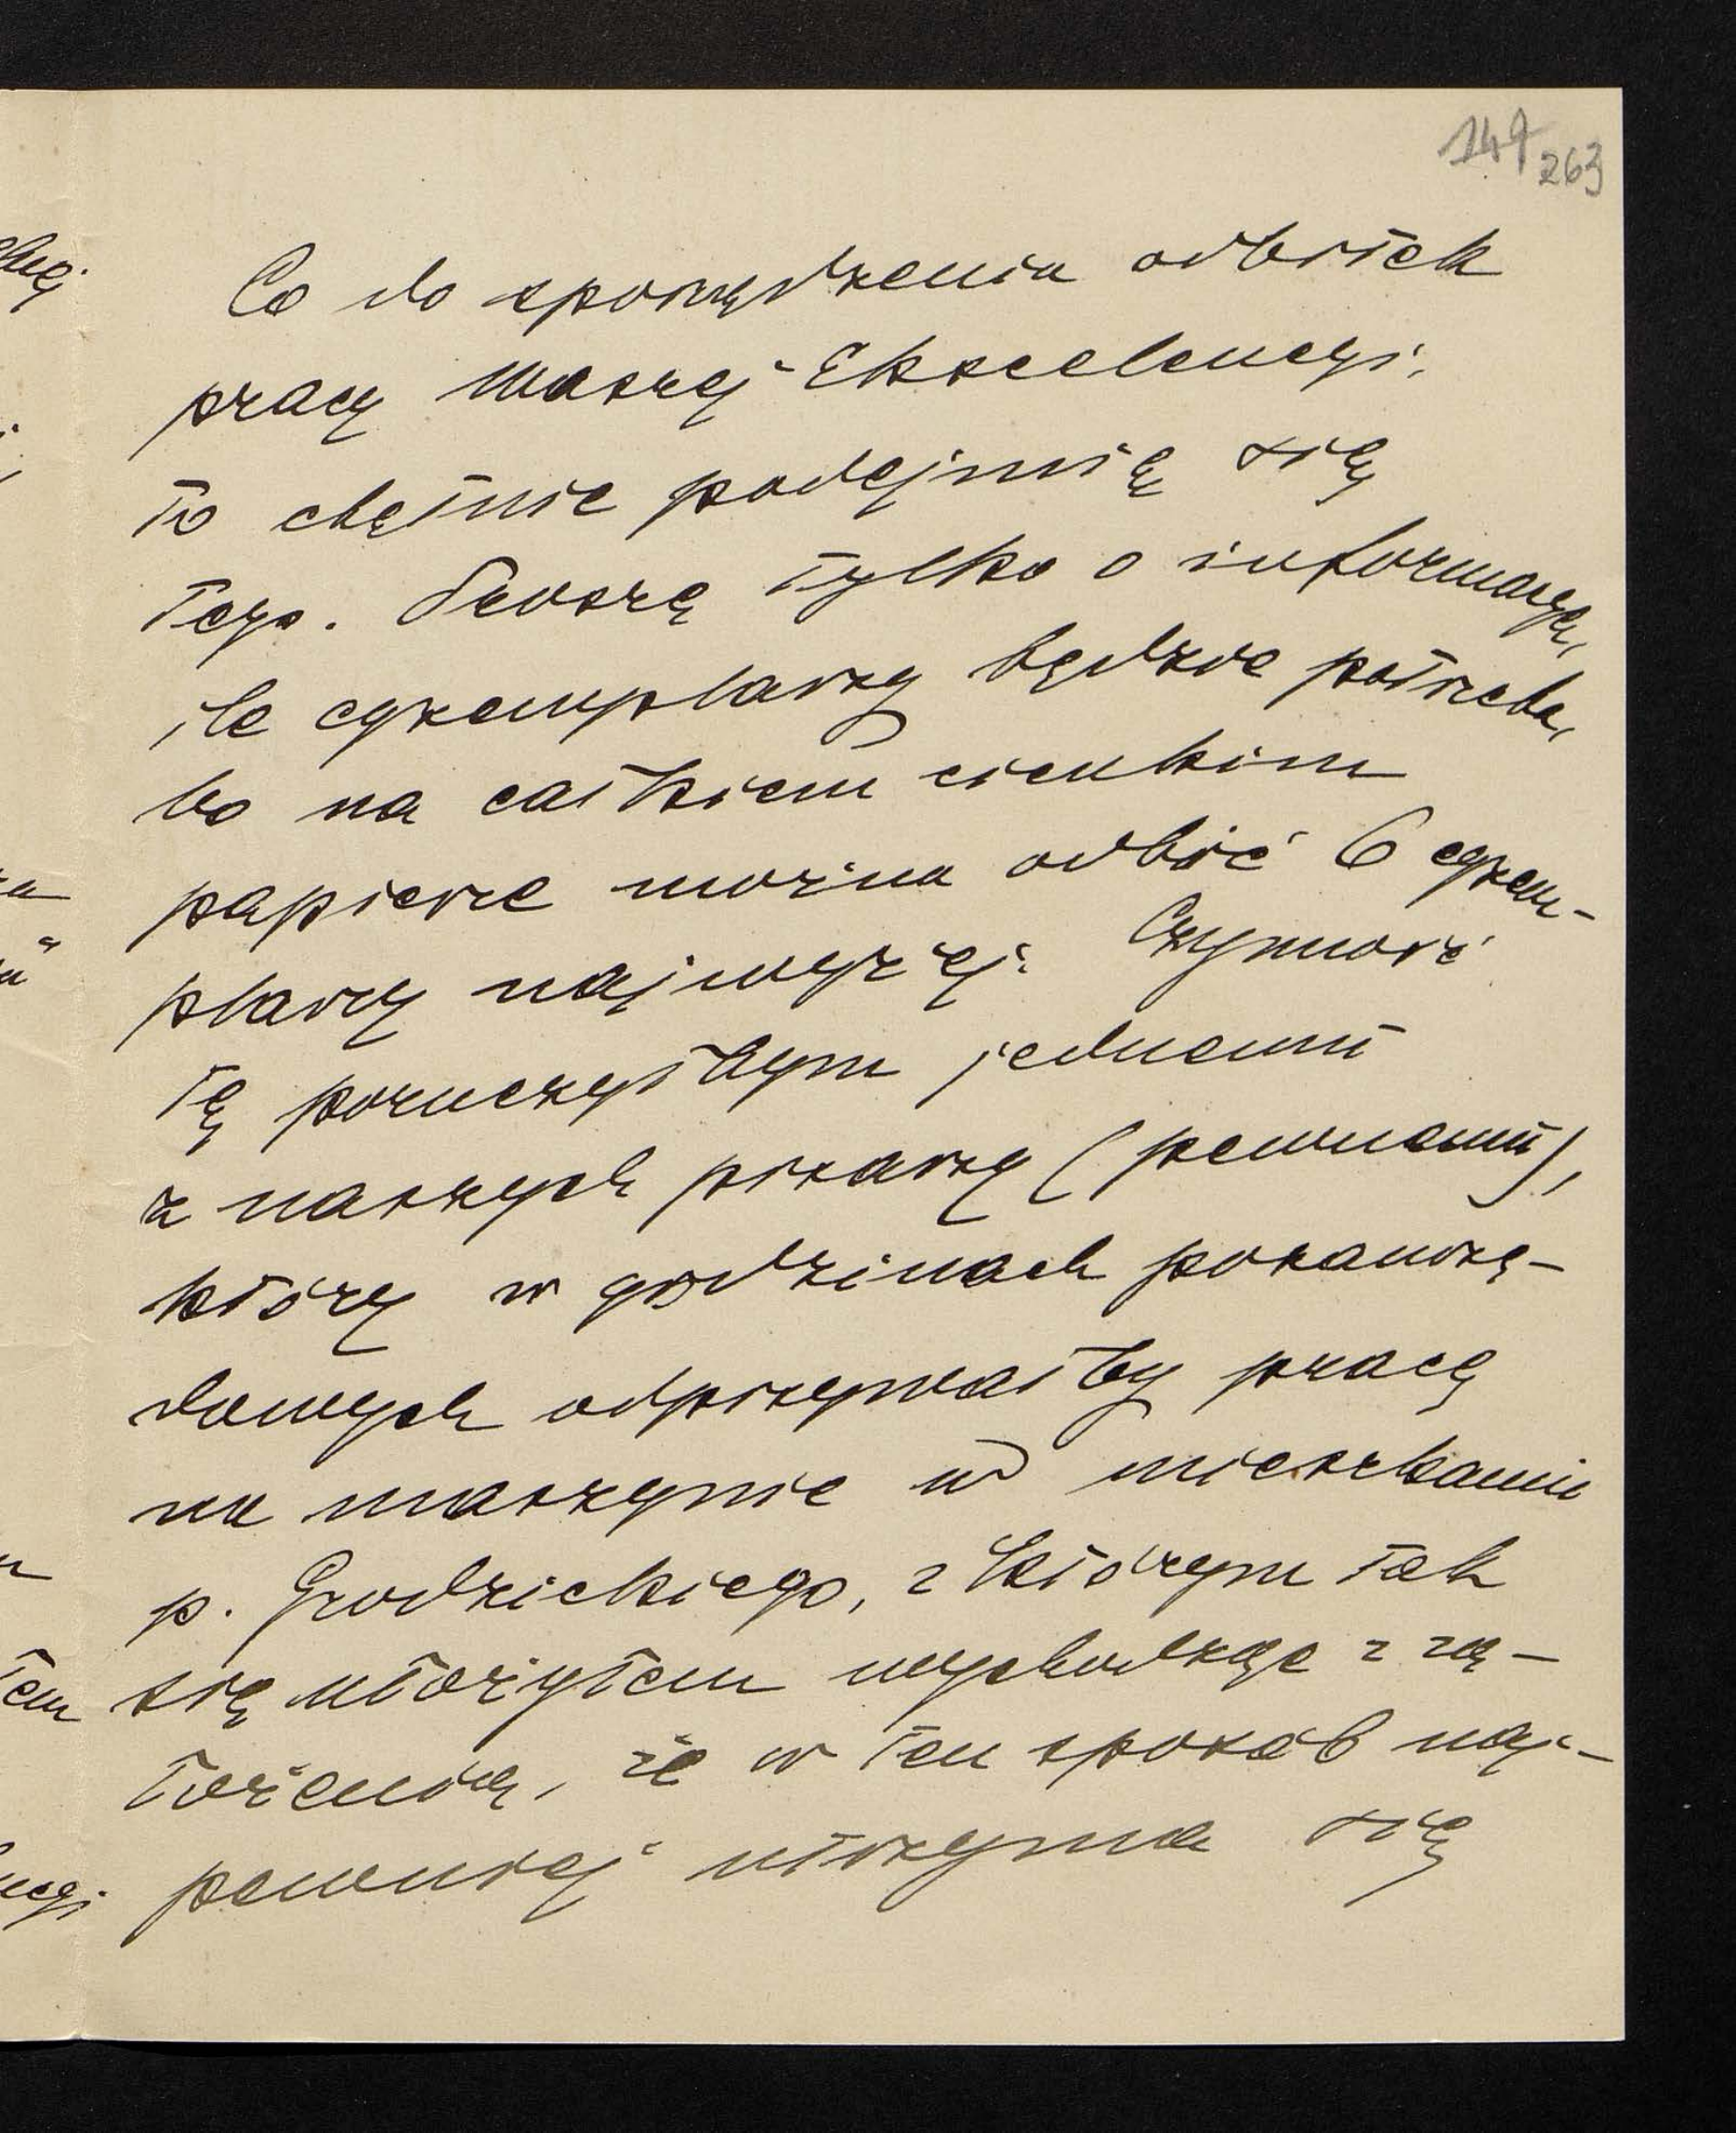 149 263
Co do sporządzenia odbitek
pracy Waszej Ekscelencyi,
to chętnie podejmię się
tego. Proszę tylko o informacyę,
ile egzemplarzy będzie potrzeba,
bo na całkiem cienkim
papierze można odbić 6 egzem-
plarzy najwyżej. Czynność
tę poruczyłbym jednemu
z naszych pisarzy (pewnemu),
który w godzinach pozaurzę-
dowych odpisywałby pracę
na maszynie w mieszkaniu
p. Grodzickiego, z którym tak
się ułożyłem wychodząc z za-
łożenia, że w ten sposób naj-
pewniej utrzyma się